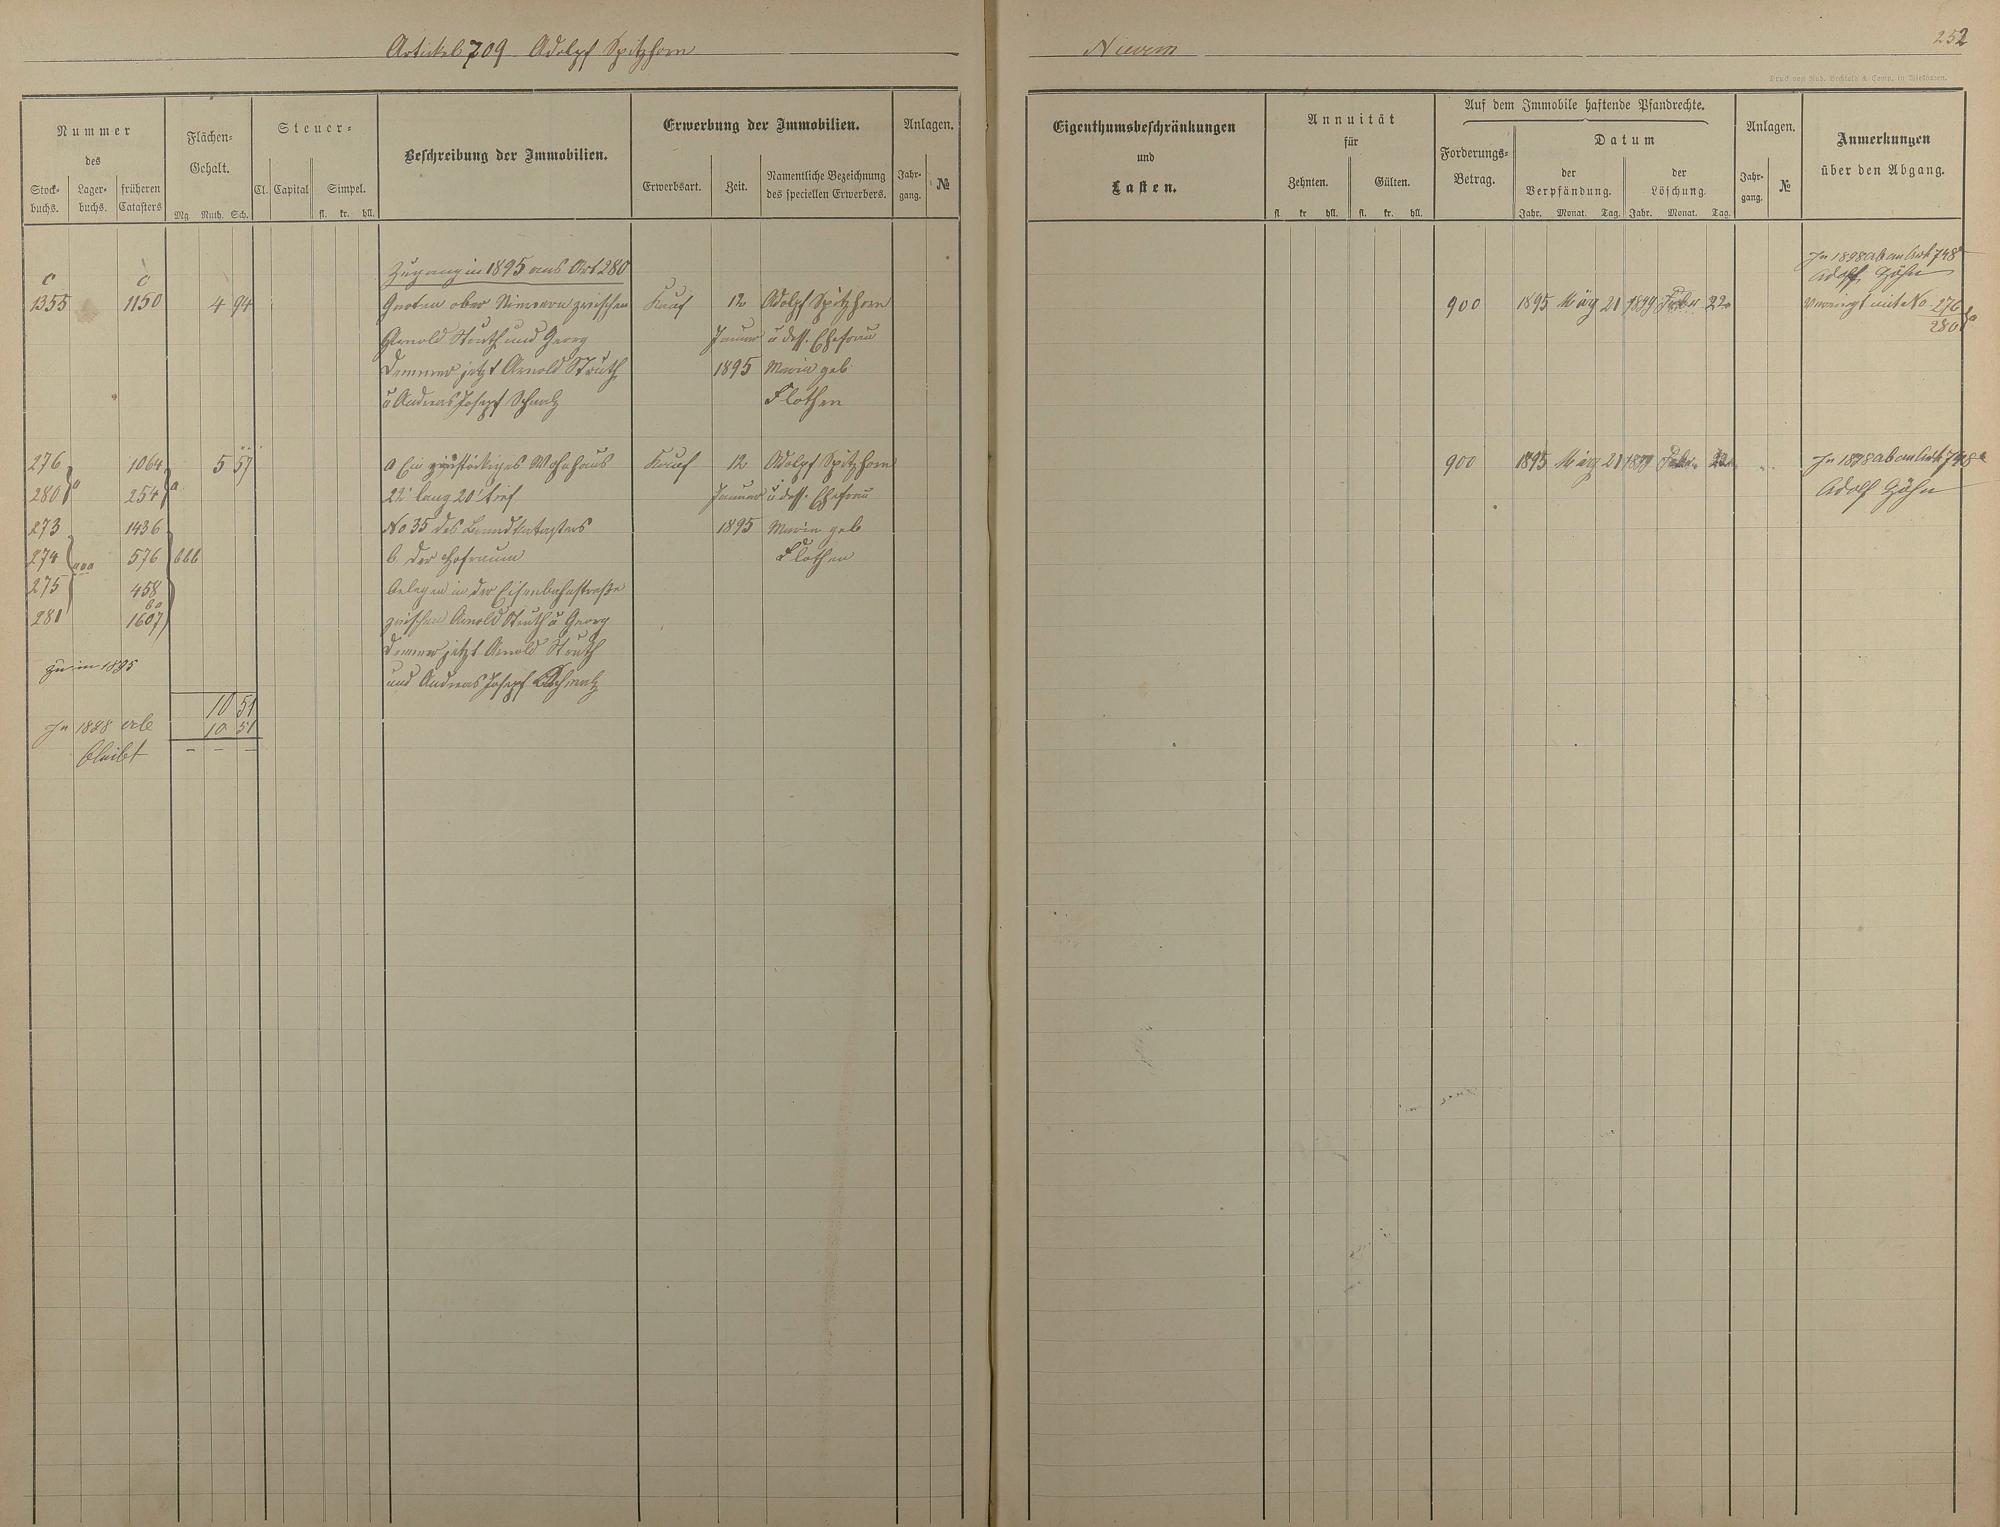 Artickel 709 Adolpf Spitzhorn
Nievern
252
Druck von Rud. Bechtold & Comp. in Wiesbaden.
Nummer
des
Stock-
buchs.
Lager-
buchs.
früheren
Catasters
Flächen-
Gehalt.
Mg. Ruth. Sch.
Steuer-
Cl. Capital Simpel.
fl. kr. hll.
Beschreibung der Immobilien.
Erwerbung der Immobilien.
Erwerbsart. Zeit.
Namentliche Bezeichnung
des speciellen Erwerbers.
Anlagen.
Jahr-
gang.
№
Eigenthumsbeschränkungen
und
Lasten.
Annuität
für
Zehnten. Gülten.
fl. kr hll. fl. kr. hll.
Auf dem Immobile haftende Pfandrechte.
Forderungs-
Betrag.
Datum
der
Verpfändung.
der
Löschung
Jahr. Monat. Tag. Jahr. Monat. Tag.
Anlagen.
Jahr-
gang.
№
Anmerkungen
über den Abgang.
Zugang in 1895 aus Art 280
C C
1355 1150 4 94 Garten ober Nievern zwischen Kauf 12 Adolpf Spitzhorn 900 1895 März 21 1899 Febr 22
Arnold Struth und Georg Januar u dess. Ehefrau
Demmer jetzt Arnold Struth 1895 Maria geb
u Andreas Josepf Schmalz Flothen
In 1898 ab an Artk 748
Adolf Höhn
Vereinigt mit No 276
280 a
276 1064 5 57 a Ein zweistöckiges Wohnhaus Kauf 12 Adolpf Spitzhorn 900 1895 März 21 1899 Febr. 22
280 a 254 a 22' lang 20' tief Januar u dess. Ehefrau
273 1436 No 35 des Brandkatasters 1895 Maria geb
274 aaa 576 bbb b. der Hofraum Flothen
275 458 belegen in der Eisenbahnstraße
281 1607 zwischen Arnold Struth u Georg
Demmer jetzt Arnold Struth
und Andreas Josepf Schmalz
In 1898 ab an Artk 748
Adolf Höhn
zu in 1895
10 51
In 1898 ab 10 51
bleibt – – –